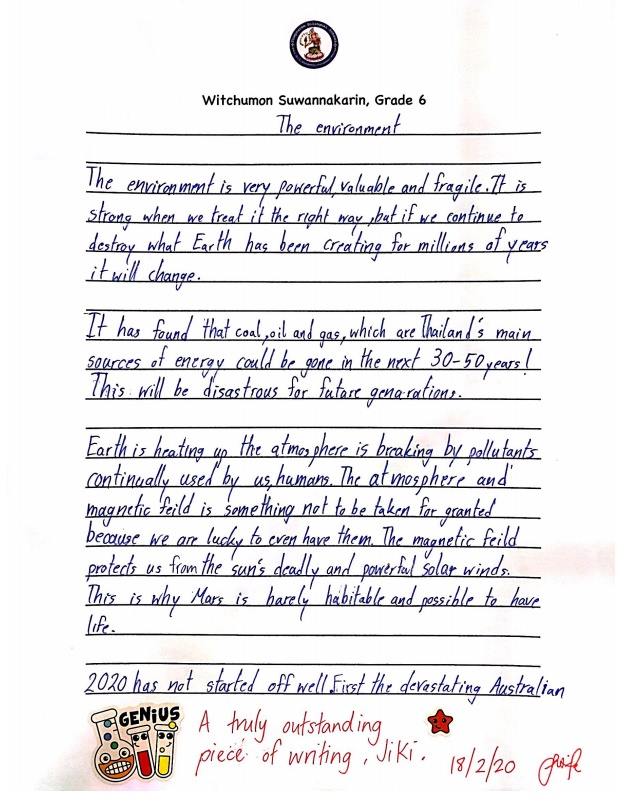 Witchumon Suwannakarin, Grade 6
The environment
The environment is very powerful, valuable and fragile. It is
strong when we treat it the right way, but if we continue to
destroy what Earth has been creating for millions of years
it will change.
It has found that coal, oil and gas, which are Thailand's main
sources of energy could be gone in the next 30-50 years!
This will be disastrous for future genarations.
Earth is heating up the atmosphere is breaking by pollutants
continually used by us, humans. The atmosphere and
magnetic feild is something not to be taken for granted
because we are lucky to even have them. The magnetic feild
protects us from the sun's deadly and powerful solar winds.
This is why Mars is barely habitable and possible to have
life.
2020 has not started off well. First the devastating Australian
GENiUS
A truly outstanding
piece of writing, JiKi.
18/2/20